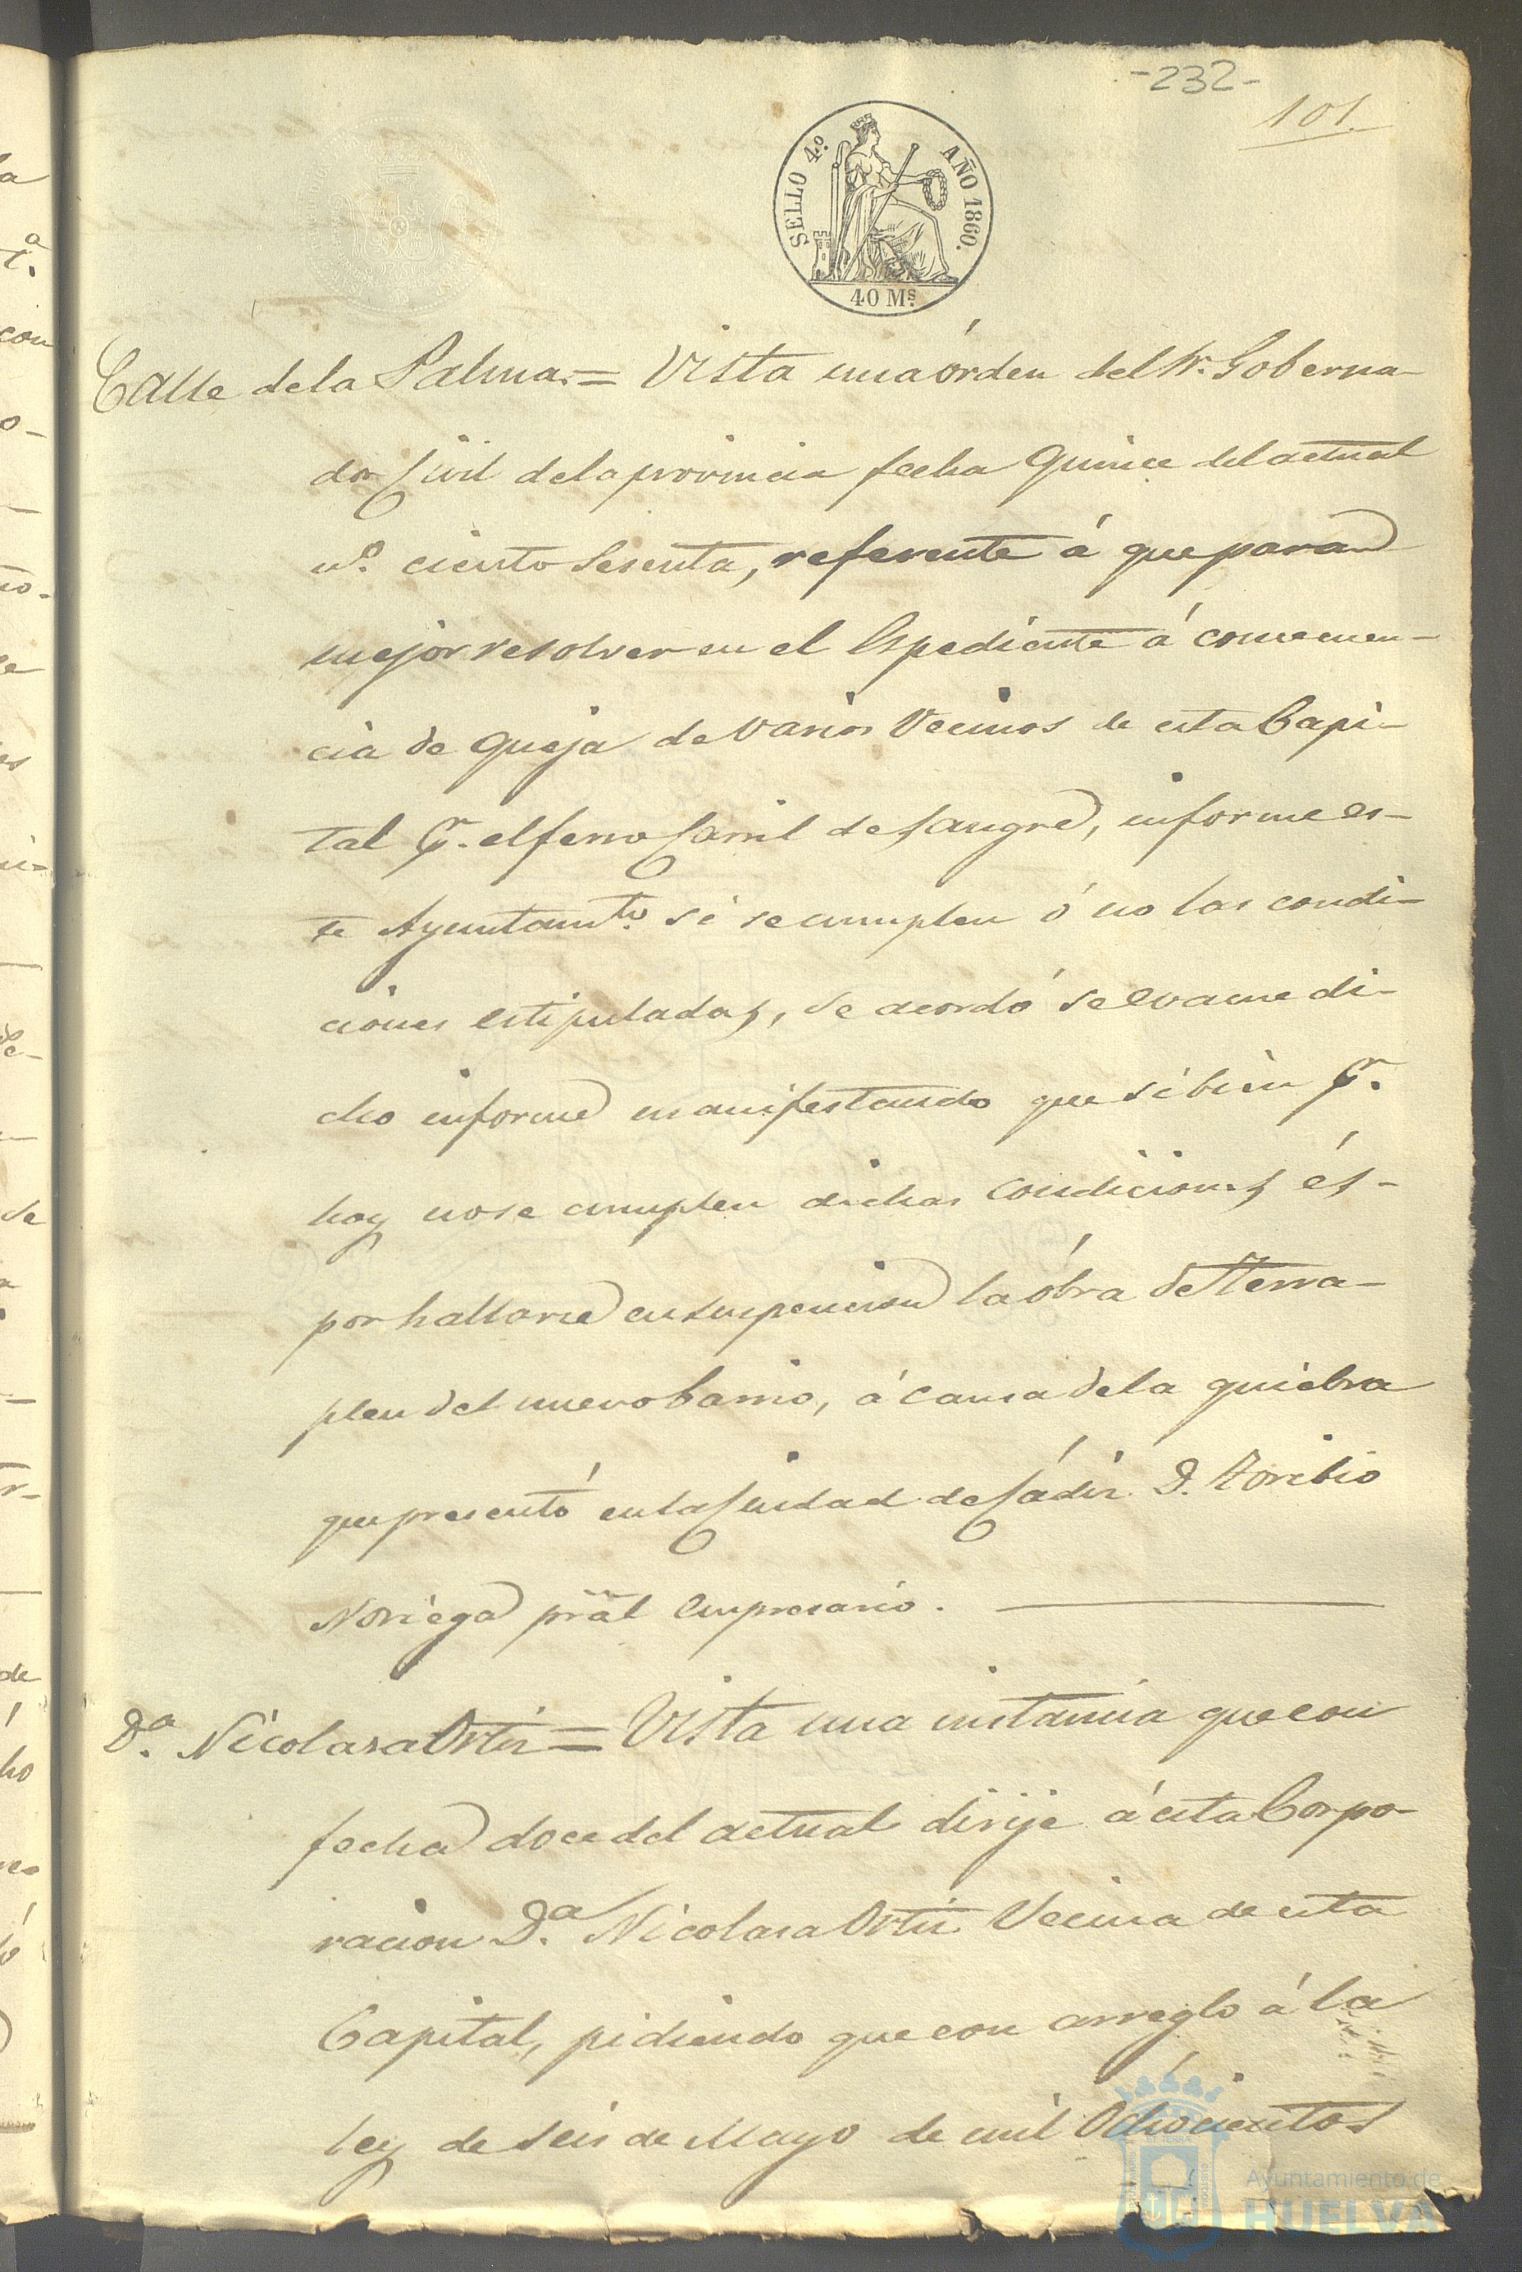 -232-
101.
SELLO 4.º AÑO 1860.
40 Ms.
Calle de la Palma = Vista una órden del Sr. Goberna-
dor Civil de la provincia fecha Quince del actual
nº. ciento Sesenta, referente á que para
mejor resolver en el Espediente á consecuen-
cia de queja de varios Vecinos de esta Capi-
tal pr. el ferro Carril de Sangre, informe es-
te Ayuntamto. si se cumplen ó no las condi-
ciones estipuladas, se acordó se evacue di-
cho informe manifestando que si bien pr.
hoy no se cumplen dichas Condiciones és-
por hallarse en suspencion la óbra de Terra-
plen del nuevo barrio, á causa de la quiebra
que presentó en la Ciudad de Cádiz D. Toribio
Noriega pral Empresario.
Da. Nicolasa Ortiz = Vista una instancia que con
fecha doce del actual dirije á esta Corpo-
racion Da. Nicolasa Ortiz Vecina de esta
Capital, pidiendo que con arreglo á la
ley de seis de Mayo de mil Ochocientos
Ayuntamiento de
HUELVA